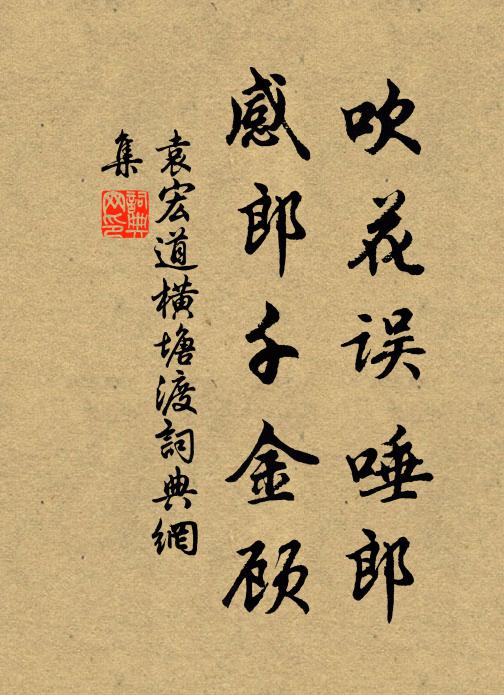 吹花误唾郎
感郎千金顾
袁宏道橫塘渡詞典網
集
詞典網印